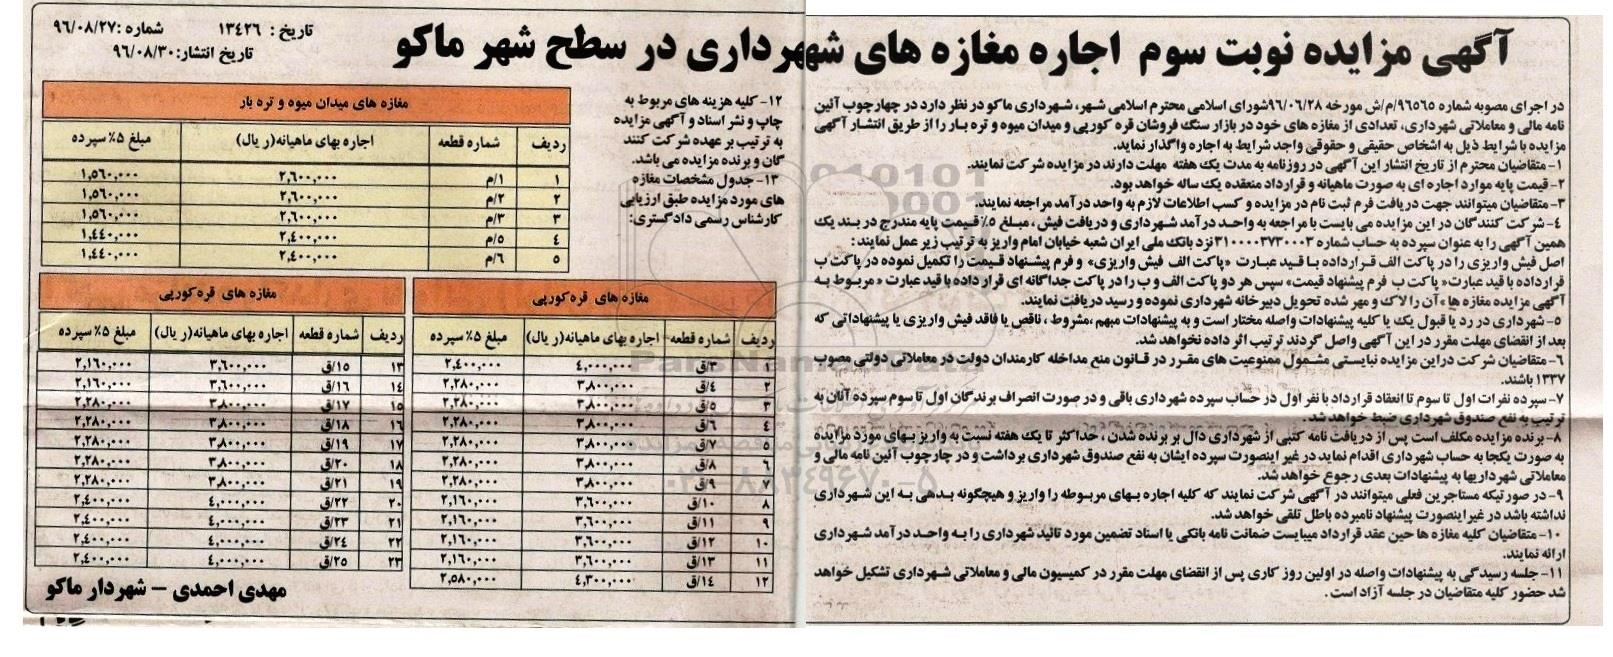 آگهی مزایده نوبت سوم اجاره مغازه های شهرداری در سطح شهر ماکو
تاریخ : ۱۳۴۲۶ شماره :۹۶/۰۸/۲۷
تاریخ انتشار:۹۶/۰۸/۳۰
در اجرای مصوبه شماره ۹۶۵۶۵/م/ش مورخه ۹۶/۰۶/۲۸شورای اسلامی محترم اسلامی شهر، شهرداری ماکو در نظر دارد در چهارچوب آئین
نامه مالی و معاملاتی شهرداری، تعدادی از مغازه های خود در بازار سنگ فروشان قره کورپی و میدان میوه و تره بار را از طریق انتشار آگهی
مزایده با شرایط ذیل به اشخاص حقیقی و حقوقی واجد شرایط به اجاره واگذار نماید.
۱- متقاضیان محترم از تاریخ انتشار این آگهی در روزنامه به مدت یک هفته مهلت دارند در مزایده شرکت نمایند.
۲- قیمت پایه موارد اجاره ای به صورت ماهیانه و قرارداد منعقده یک ساله خواهد بود.
۳- متقاضیان میتوانند جهت دریافت فرم ثبت نام در مزایده و کسب اطلاعات لازم به واحد درآمد مراجعه نمایند.
۴- شرکت کنندگان در این مزایده می بایست با مراجعه به واحد درآمد شهرداری و دریافت فیش ، مبلغ ۵٪ قیمت پایه مندرج در بند یک
همین آگهی را به عنوان سپرده به حساب شماره ۳۱۰۰۰۰۳۷۳۰۰۰۳ نزد بانک ملی ایران شعبه خیابان امام واریز به ترتیب زیر عمل نمایند:
اصل فیش واریزی را در پاکت الف قرارداده با قید عبارت «پاکت الف فیش واریزی» و فرم پیشنهاد قیمت را تکمیل نموده در پاکت ب
قرارداده با قید عبارت« پاکت ب فرم پیشنهاد قیمت» سپس هر دو پاکت الف و ب را در پاکت جداگانه ای قرار داده با قید عبارت « مربوط به
آگهی مزایده مغازه ها »آن را لاک و مهر شده تحویل دبیرخانه شهرداری نموده و رسید دریافت نمایند.
۵- شهرداری در رد یا قبول یک یا کلیه پیشنهادات واصله مختار است و به پیشنهادات مبهم ،مشروط ، ناقص یا فاقد فیش واریزی یا پیشنهاداتی که
بعد از انقضای مهلت مقرر در این آگهی واصل گردند ترتیب اثر داده نخواهد شد.
۶- متقاضیان شرکت دراین مزایده نبایستی مشمول ممنوعیت های مقرر در قانون منع مداخله کارمندان دولت در معاملاتی دولتی مصوب
۱۳۳۷ باشند.
۷- سپرده نفرات اول تا سوم تا انعقاد قرارداد با نفر اول در حساب سپرده شهرداری باقی و در صورت انصراف برندگان اول تا سوم سپرده آنان به
ترتیب به نفع صندوق شهرداری ضبط خواهد شد.
۸- برنده مزایده مکلف است پس از دریافت نامه کتبی از شهرداری دال بر برنده شدن ، حداکثر تا یک هفته نسبت به واریز بهای مورد مزایده
به صورت یکجا به حساب شهرداری اقدام نماید در غیر اینصورت سپرده ایشان به نفع صندوق شهرداری برداشت و در چارچوب آئین نامه مالی و
معاملاتی شهرداریها به پیشنهادات بعدی رجوع خواهد شد.
۹- در صورتیکه مستاجرین فعلی میتوانند در آگهی شرکت نمایند که کلیه اجاره بهای مربوطه را واریز و هیچگونه بدهی به این شهرداری
نداشته باشد در غیر اینصورت پیشنهاد نامبرده باطل تلقی خواهد شد.
۱۰- متقاضیان کلیه مغازه ها حین عقد قرارداد میبایست ضمانت نامه بانکی یا اسناد تضمین مورد تائید شهرداری را به واحد درآمد شهرداری
ارائه نمایند.
۱۱- جلسه رسیدگی به پیشنهادات واصله در اولین روز کاری پس از انقضای مهلت مقرر در کمیسیون مالی و معاملاتی شهرداری تشکیل خواهد
شد حضور کلیه متقاضیان در جلسه آزاد است .
۱۲- کلیه هزینه های مربوط به
چاپ و نشر اسناد و آگهی مزایده
به ترتیب بر عهده شرکت کنند
گان و برنده مزایده می باشد.
۱۳- جدول مشخصات مغازه
های مورد مزایده طبق ارزیابی
کارشناس رسمی دادگستری:
مغازه های میدان میوه و تره بار
ردیف شماره قطعه اجاره بهای ماهیانه(ر یال) مبلغ ۵٪ سپرده
۱ ۱/م ۲,۶۰۰,۰۰۰ ۱,۵۶۰,۰۰۰
۲ ۲/م ۲,۶۰۰,۰۰۰ ۱,۵۶۰,۰۰۰
۳ ۳/م ۲,۶۰۰,۰۰۰ ۱,۵۶۰,۰۰۰
۴ ۵/م ۲,۴۰۰,۰۰۰ ۱,۴۴۰,۰۰۰
۵ ۶/م ۲,۴۰۰,۰۰۰ ۱,۴۴۰,۰۰۰
مغازه های قره کورپی
ردیف شماره قطعه اجاره بهای ماهیانه(ر یال) مبلغ ۵٪ سپرده
۱ ۳/ق ۴,۰۰۰,۰۰۰ ۲,۴۰۰,۰۰۰
۲ ۴/ق ۳,۸۰۰,۰۰۰ ۲,۲۸۰,۰۰۰
۳ ۵/ق ۳,۸۰۰,۰۰۰ ۲,۲۸۰,۰۰۰
۴ ۶/ق ۳,۸۰۰,۰۰۰ ۲,۲۸۰,۰۰۰
۵ ۷/ق ۳,۸۰۰,۰۰۰ ۲,۲۸۰,۰۰۰
۶ ۸/ق ۳,۸۰۰,۰۰۰ ۲,۲۸۰,۰۰۰
۷ ۹/ق ۳,۸۰۰,۰۰۰ ۲,۲۸۰,۰۰۰
۸ ۱۰/ق ۳,۶۰۰,۰۰۰ ۲,۱۶۰,۰۰۰
۹ ۱۱/ق ۳,۶۰۰,۰۰۰ ۲,۱۶۰,۰۰۰
۱۰ ۱۲/ق ۳,۶۰۰,۰۰۰ ۲,۱۶۰,۰۰۰
۱۱ ۱۳/ق ۳,۶۰۰,۰۰۰ ۲,۱۶۰,۰۰۰
۱۲ ۱۴/ق ۴,۳۰۰,۰۰۰ ۲,۵۸۰,۰۰۰
مغازه های قره کورپی
ردیف شماره قطعه اجاره بهای ماهیانه(ر یال) مبلغ ۵٪ سپرده
۱۳ ۱۵/ق ۳,۶۰۰,۰۰۰ ۲,۱۶۰,۰۰۰
۱۴ ۱۶/ق ۳,۶۰۰,۰۰۰ ۲,۱۶۰,۰۰۰
۱۵ ۱۷/ق ۳,۸۰۰,۰۰۰ ۲,۲۸۰,۰۰۰
۱۶ ۱۸/ق ۳,۸۰۰,۰۰۰ ۲,۲۸۰,۰۰۰
۱۷ ۱۹/ق ۳,۸۰۰,۰۰۰ ۲,۲۸۰,۰۰۰
۱۸ ۲۰/ق ۳,۸۰۰,۰۰۰ ۲,۲۸۰,۰۰۰
۱۹ ۲۱/ق ۳,۸۰۰,۰۰۰ ۲,۲۸۰,۰۰۰
۲۰ ۲۲/ق ۴,۰۰۰,۰۰۰ ۲,۴۰۰,۰۰۰
۲۱ ۲۳/ق ۴,۰۰۰,۰۰۰ ۲,۴۰۰,۰۰۰
۲۲ ۲۴/ق ۴,۰۰۰,۰۰۰ ۲,۴۰۰,۰۰۰
۲۳ ۲۵/ق ۴,۰۰۰,۰۰۰ ۲,۴۰۰,۰۰۰
مهدی احمدی – شهردار ماکو